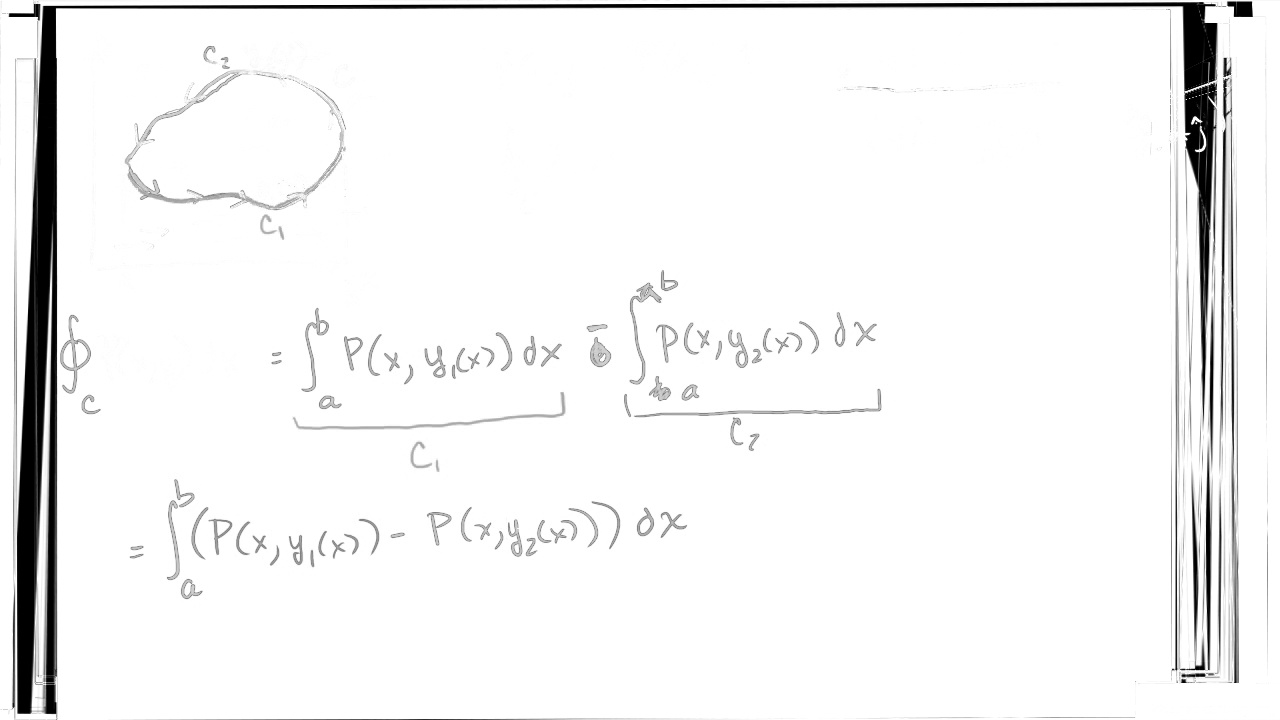 C₂
ĵ
C₁
∮_C = ∫_a^b P(x, y₁(x)) dx - ∫_a^b P(x, y₂(x)) dx
C₁ C₂
= ∫_a^b (P(x, y₁(x)) - P(x, y₂(x))) dx